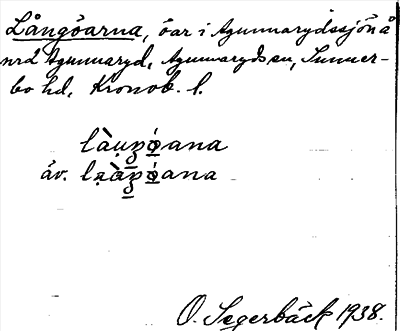 Långöarna, öar i Agunnarydssjön å
nrd Agunnaryd, Agunnaryds sn, Sunner-
bo hd, Kronob. l.
av.
O. Segerbäck 1938.